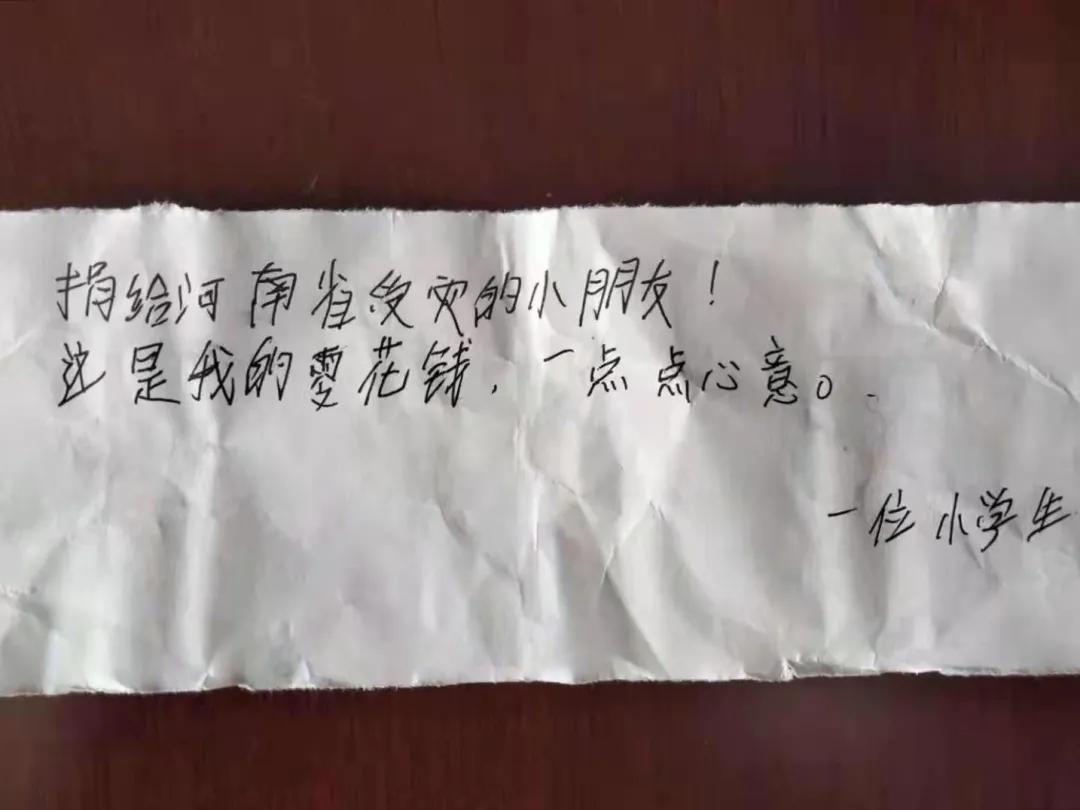 捐给河南省受灾的小朋友！
这是我的零花钱，一点点心意。
一位小学生